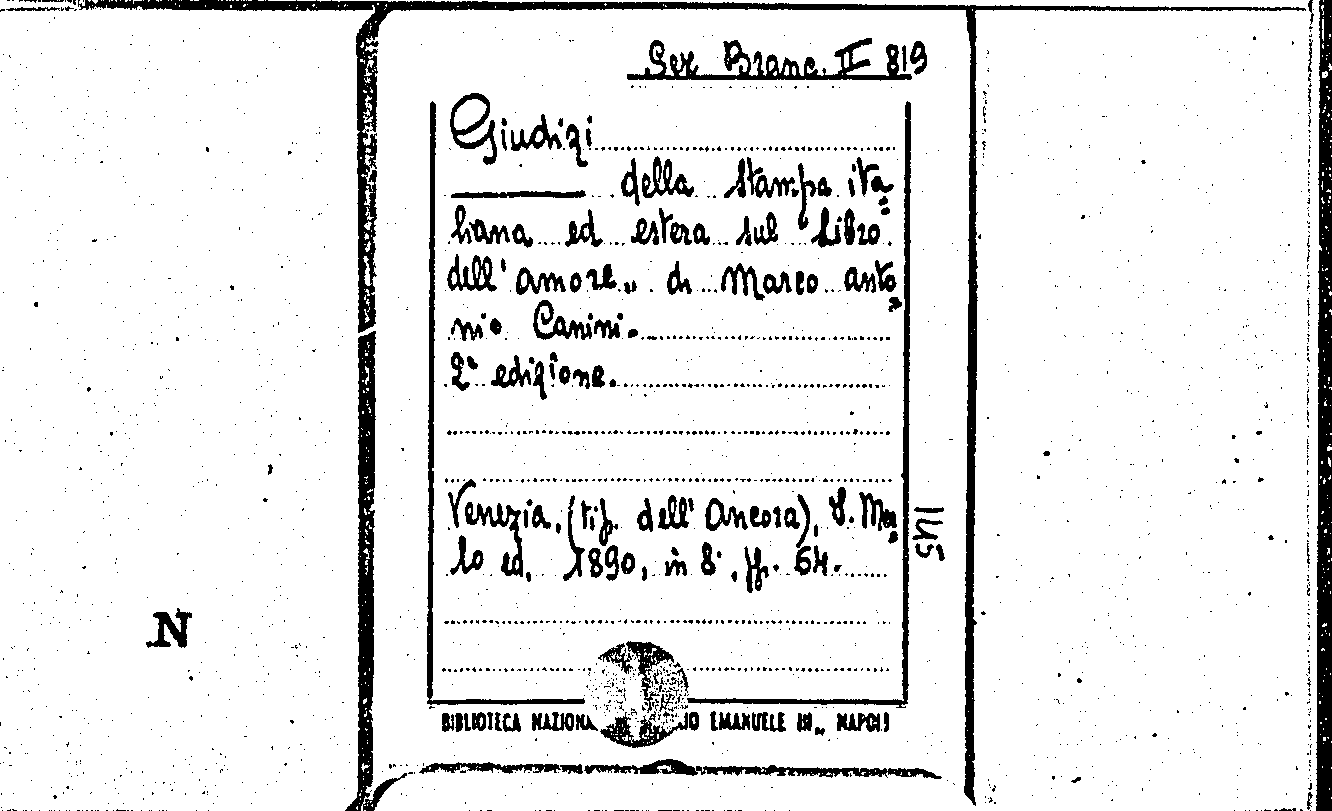 Sez Branc. II 819
Giudizi
della stampa ita=
liana ed estera sul "Libro
dell'amore" di Marco anto=
nio Canini.
2ª edizione.
Venezia, (tip. dell'Ancora), S. Mer=
lo ed, 1890, in 8°, pp. 64.
145
N
BIBLIOTECA EMANUELE III", NAPOLI